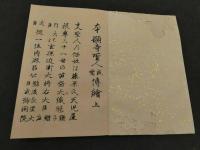 本願寺聖人親鸞傳繪上
夫聖人の俗姓は藤原氏天児屋
根尊二十一世の苗裔大織冠
の玄孫近衛大将右大臣
従一位内麿公